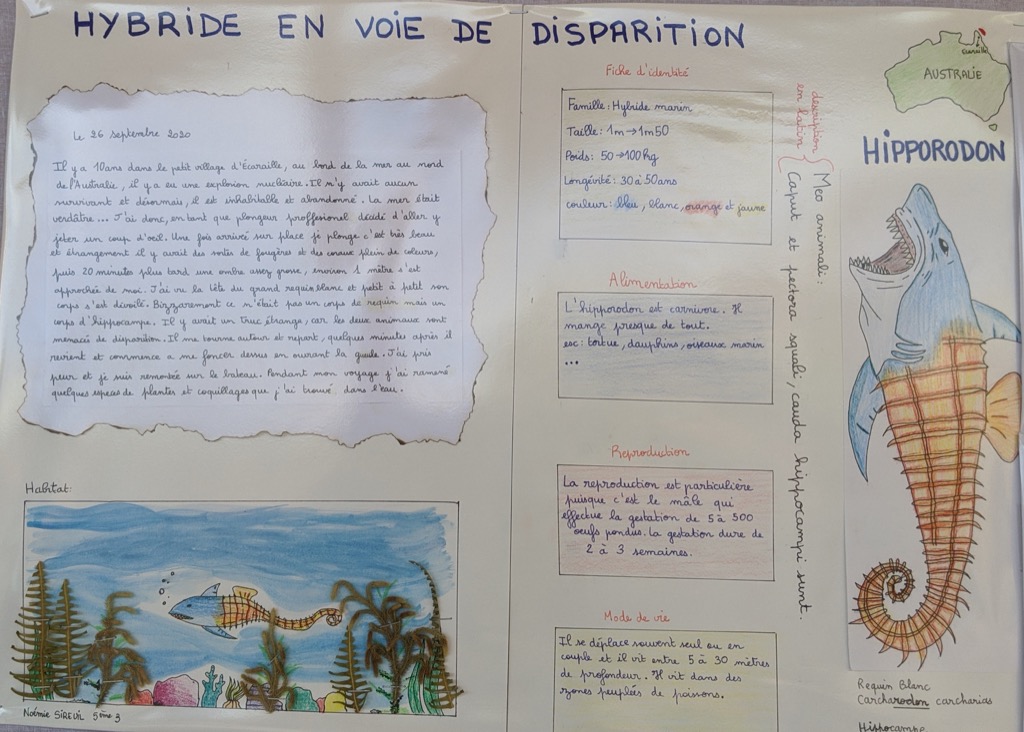 HYBRIDE EN VOIE DE DISPARITION
Le 26 septembre 2020
Il y a 10ans dans le petit village d'Écaraille, au bord de la mer au nord
de l'Australie, il y a eu une explosion nucléaire. Il n'y avait aucun
survivant et désormais, il est inhabitable et abandonné. La mer était
verdâtre... J'ai donc, en tant que plongeur proffesionel décidé d'aller y
jeter un coup d'oeil. Une fois arrivé sur place je plonge c'est très beau
et étrangement il y avait des sortes de fougères et des coraux plein de coleurs,
puis 20 minutes plus tard une ombre assez grosse, environ 1 mètre s'est
approchée de moi. J'ai vu la tête du grand requin blanc et petit à petit son
corps s'est dévoilé. Bizzarement ce n'était pas un corps de requin mais un
corps d'hippocampe. Il y avait un truc étrange, car les deux animaux sont
menacés de disparition. Il me tourne autour et repart, quelques minutes après il
revient et commence a me foncer dessus en ouvrant la gueule. J'ai pris
peur et je suis remontée sur le bateau. Pendant mon voyage j'ai ramené
quelques espèces de plantes et coquillages que j'ai trouvé dans l'eau.
Habitat:
Noémie SIREUIL 5ème 3
Fiche d'identité
Famille: Hybride marin
Taille: 1m→1m50
Poids: 50→100kg
Longévité: 30 à 50ans
couleur: bleu, blanc, orange et jaune
Alimentation
L'hipporodon est carnivore. Il
mange presque de tout.
esc: tortue, dauphins, oiseaux marin
...
Reproduction
La reproduction est particulière
puisque c'est le mâle qui
effectue la gestation de 5 à 500
oeufs pondus. La gestation dure de
2 à 3 semaines.
Mode de vie
Il se déplace souvent seul ou en
couple et il vit entre 5 à 30 mètres
de profondeur. Il vit dans des
zones peuplés de poissons.
description
en latin
Meo animali:
Caput et pectora squali, cauda hippocampi sunt.
AUSTRALIE
HIPPORODON
Requin Blanc
Carcharodon carcharias
Hippocampe